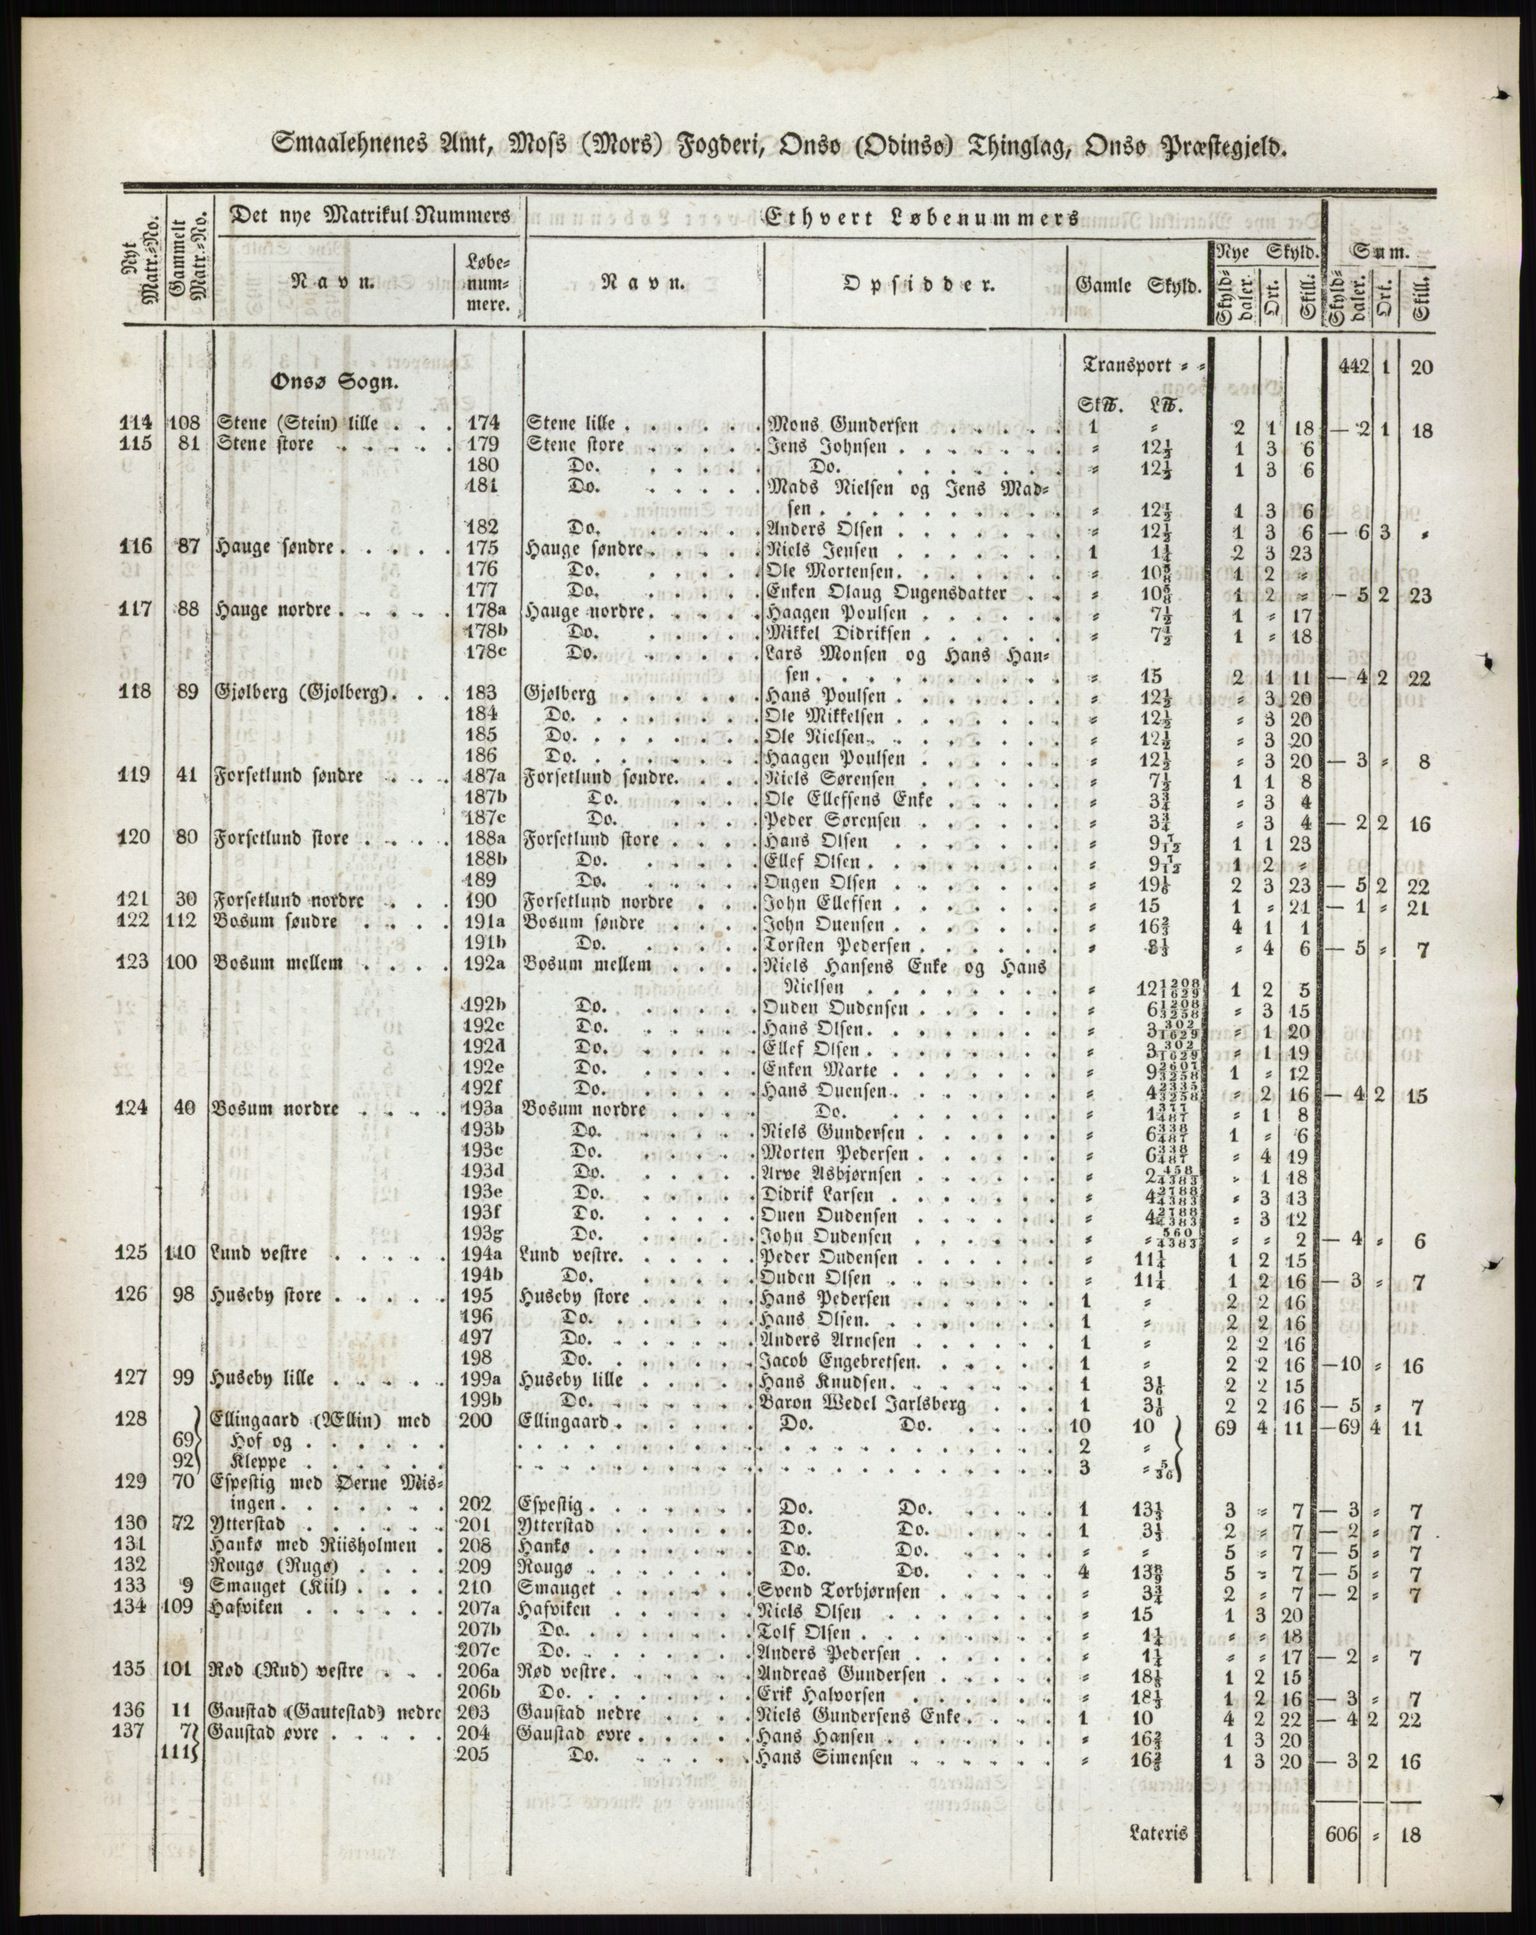 Smaalehnenes Amt, Moss (Mors) Fogderi, Onsø (Odinsø) Thinglag, Onsø Præstegjeld.
Nyt Matr.-No. Gammelt Matr.-No. Det nye Matrikul Nummers Ethvert Løbenummers
Navn. Løbenummere. Navn. Opsidder. Gamle Skyld. Nye Skyld. Sum.
Skylddaler. Ort. Skill. Skylddaler. Ort. Skill.
Transport - - 442 1 20
Onsø Sogn.
Sk℔. L℔.
114 108 Stene (Stein) lille . . . 174 Stene lille . . . . . . Mons Gundersen . . . . . 1 - 2 1 18 — 2 1 18
115 81 Stene store . . . . . 179 Stene store . . . . . Jens Johnsen . . . . . . - 12½ 1 3 6
180 Do. . . . . . Do. . . . . . . - 12½ 1 3 6
181 Do. . . . . . Mads Nielsen og Jens Mad-
sen . . . . . . . . . - 12½ 1 3 6
182 Do. . . . . . Anders Olsen . . . . . . - 12½ 1 3 6 — 6 3 -
116 87 Hauge søndre . . . . . 175 Hauge søndre . . . . . Niels Jensen . . . . . . 1 1¼ 2 3 23
176 Do. . . . . . Ole Mortensen . . . . . . - 10⅝ 1 2 -
177 Do. . . . . . Enken Olaug Ougensdatter . . - 10⅝ 1 2 - — 5 2 23
117 88 Hauge nordre . . . . . 178a Hauge nordre . . . . . Haagen Poulsen . . . . . - 7½ 1 - 17
178b Do. . . . . . Mikkel Didriksen . . . . . - 7½ 1 - 18
178c Do. . . . . . Lars Monsen og Hans Han-
sen . . . . . . . . . - 15 2 1 11 — 4 2 22
118 89 Gjølberg (Gjolberg) . . . 183 Gjølberg . . . . . . Hans Poulsen . . . . . . - 12½ - 3 20
184 Do. . . . . . . . Ole Mikkelsen . . . . . . - 12½ - 3 20
185 Do. . . . . . . . Ole Nielsen . . . . . . . - 12½ - 3 20
186 Do. . . . . . . . Haagen Poulsen . . . . . - 12½ - 3 20 — 3 - 8
119 41 Forsetlund søndre . . . 187a Forsetlund søndre . . . . Niels Sørensen . . . . . - 7½ 1 1 8
187b Do. . . . . Ole Ellefsens Enke . . . . . - 3¾ - 3 4
187c Do. . . . . Peder Sørensen . . . . . - 3¾ - 3 4 — 2 2 16
120 80 Forsetlund store . . . . 188a Forsetlund store . . . . . Hans Olsen . . . . . . - 9 7/12 1 1 23
188b Do. . . . . . Ellef Olsen . . . . . . . - 9 7/12 1 2 -
189 Do. . . . . . Ougen Olsen . . . . . . - 19⅙ 2 3 23 — 5 2 22
121 30 Forsetlund nordre . . . 190 Forsetlund nordre . . . John Ellefsen . . . . . . - 15 1 - 21 — 1 - 21
122 112 Bosum søndre . . . . 191a Bosum søndre . . . . John Ouensen . . . . . . - 16⅔ 4 1 1
191b Do. . . . . . Torsten Pedersen . . . . . - 8⅓ - 4 6 — 5 - 7
123 100 Bosum mellem . . . . 192a Bosum mellem . . . . Niels Hansens Enke og Hans
Nielsen . . . . . . . - 12 1208/1629 1 2 5
192b Do. . . . . . Ouden Oudensen . . . . . - 6 1208/3258 - 3 15
192c Do. . . . . . Hans Olsen . . . . . . . - 3 302/1629 - 1 20
192d Do. . . . . . Ellef Olsen . . . . . . . - 3 302/1629 - 1 19
192e Do. . . . . . Enken Marte . . . . . . - 9 2607/3258 1 - 12
192f Do. . . . . . Hans Ouensen . . . . . . - 4 2335/3258 - 2 16 — 4 2 15
124 40 Bosum nordre . . . . 193a Bosum nordre . . . . Do. . . . . . . - 1 377/487 - 1 8
193b Do. . . . . . Niels Gundersen . . . . . - 6 338/487 1 - 6
193c Do. . . . . . Morten Pedersen . . . . . - 6 338/487 - 4 19
193d Do. . . . . . Arve Asbjørnsen . . . . . - 2 458/4383 - 1 18
193e Do. . . . . . Didrik Larsen . . . . . . - 4 2788/4383 - 3 13
193f Do. . . . . . Ouen Oudensen . . . . . - 4 2788/4383 - 3 12
193g Do. . . . . . John Oudensen . . . . . - - 560/4383 - - 2 — 4 - 6
125 110 Lund vestre . . . . . 194a Lund vestre . . . . . . Peder Oudensen . . . . . - 11¼ 1 2 15
194b Do. . . . . . Ouden Olsen . . . . . . - 11¼ 1 2 16 — 3 - 7
126 98 Huseby store . . . . . 195 Huseby store . . . . . Hans Pedersen . . . . . . 1 - 2 2 16
196 Do. . . . . . . Hans Olsen . . . . . . . 1 - 2 2 16
197 Do. . . . . . . Anders Arnesen . . . . . 1 - 2 2 16
198 Do. . . . . . . Jacob Engebretsen . . . . . 1 - 2 2 16 — 10 - 16
127 99 Huseby lille . . . . . 199a Huseby lille . . . . . Hans Knudsen . . . . . . 1 3⅙ 2 2 15
199b Do. . . . . . . Baron Wedel Jarlsberg . . . 1 3⅙ 2 2 16 — 5 - 7
128 Ellingaard (Ællin) med 200 Ellingaard . . . . . . Do. Do. . . . . 10 10 69 4 11 — 69 4 11
69 Hof og . . . . . . 2 -
92 Kleppe . . . . . . 3 - 5/36
129 70 Espestig med Øerne Mis-
ingen . . . . . . . 202 Espestig . . . . . . Do. Do. . . . . 1 13⅓ 3 - 7 — 3 - 7
130 72 Ytterstad . . . . . . 201 Ytterstad . . . . . . Do. Do. . . . . 1 3⅓ 2 - 7 — 2 - 7
131 Hankø med Riisholmen . 208 Hankø . . . . . . . Do. Do. . . . . - - 5 - 7 — 5 - 7
132 Rougø (Rugø) . . . . 209 Rougø . . . . . . . Do. Do. . . . . 4 13 8/9 5 - 7 — 5 - 7
133 9 Smauget (Kiil) . . . . 210 Smauget . . . . . . Svend Torbjørnsen . . . . . - 3¾ 2 - 7 — 2 - 7
134 109 Hafviken . . . . . . 207a Hafviken . . . . . . Niels Olsen . . . . . . - 15 1 3 20
207b Do. . . . . . . . Tolf Olsen . . . . . . . - 1¼ - - 18
207c Do. . . . . . . . Anders Pedersen . . . . . - 1¼ - - 17 — 2 - 7
135 101 Rød (Rud) vestre . . . 206a Rød vestre . . . . . . Andreas Gundersen . . . . - 18⅓ 1 2 15
206b Do. . . . . . . . Erik Halvorsen . . . . . - 18⅓ 1 2 16 — 3 - 7
136 11 Gaustad (Gautestad) nedre 203 Gaustad nedre . . . . Niels Gundersens Enke . . . . 1 10 4 2 22 — 4 2 22
137 7 Gaustad øvre . . . . . 204 Gaustad øvre . . . . . Hans Hansen . . . . . . - 16⅔ 1 3 20
111 205 Do. . . . . . Hans Simensen . . . . . . - 16⅔ 1 3 20 — 3 2 16
Lateris 606 - 18